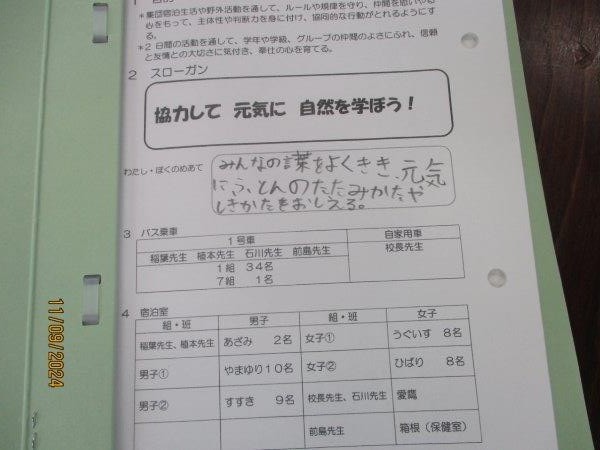 *集団宿泊生活や野外活動を通して、ルールや規律を守り、仲間を思いやる
心をもって、主体性や判断力を身に付け、協同的な行動がとれるようにす
る。
*2 日間の活動を通して、学年や学級、グループの仲間のよさにふれ、信頼
と友情との大切さに気付き、奉仕の心を育てる。
2 スローガン
協力して 元気に 自然を学ぼう！
わたし・ぼくのめあて
みんなの言葉をよくきき、元気
に、ふとんのたたみかたや
しきかたをおしえる。
3 バス乗車
1号車 自家用車
稲葉先生 植本先生 石川先生 前島先生 校長先生
1組 34名
7組 1名
4 宿泊室
組・班 男子 組・班 女子
稲葉先生、植本先生 あざみ 2名 女子① うぐいす 8名
男子① やまゆり10名 女子② ひばり 8名
男子② すすき 9名 校長先生、石川先生 愛鷹
前島先生 箱根（保健室）
11/09/2024